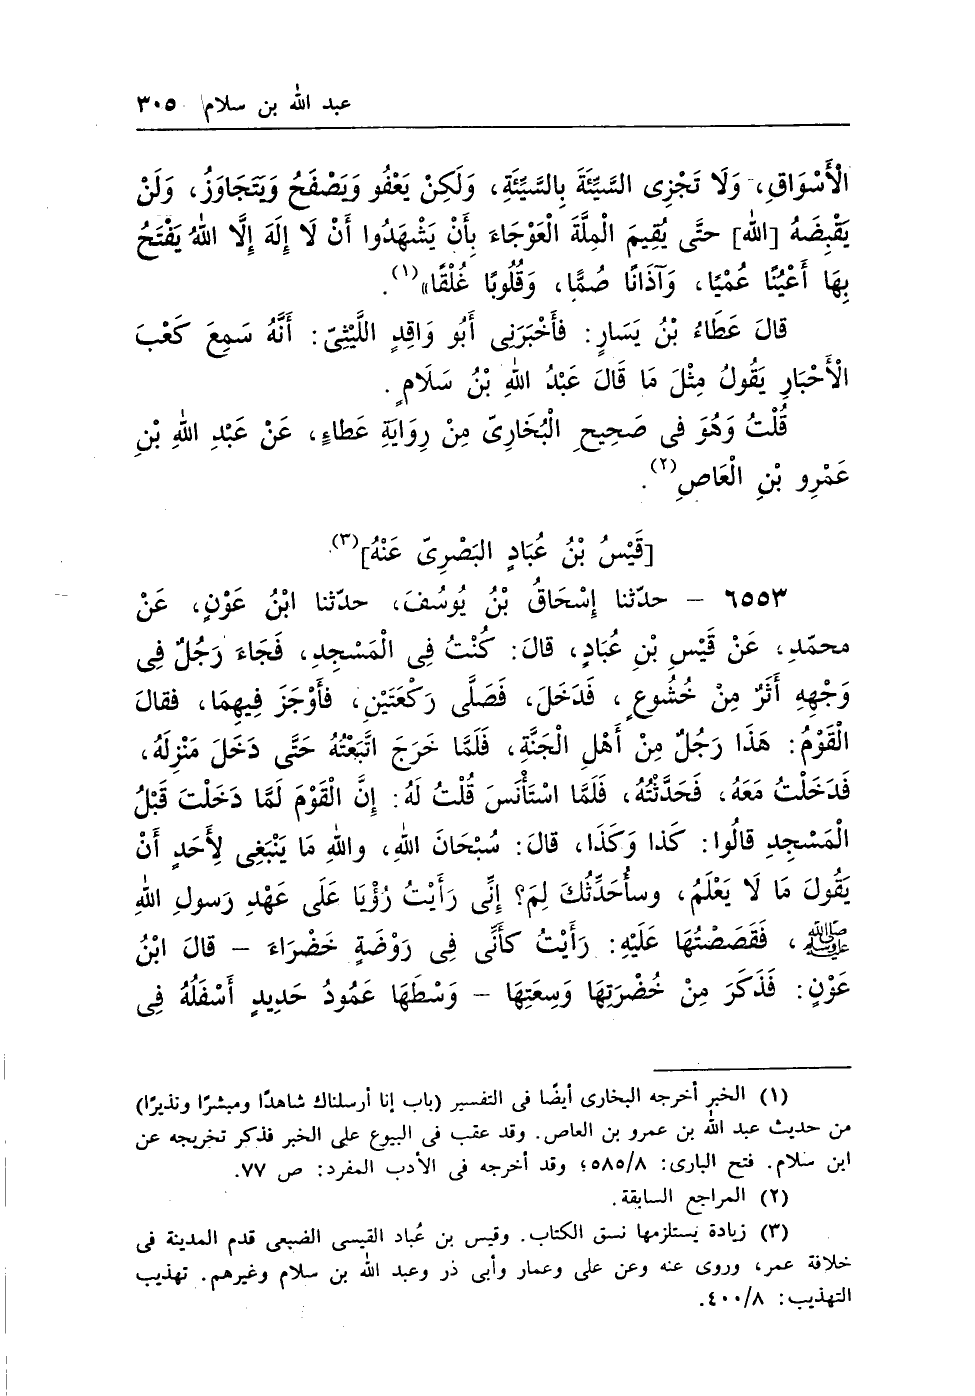 عبد الله بن سلام ٣٠٥
الْأَسْوَاقِ، وَلَا تَجْزِى السَّيِّئَةَ بِالسَّيِّئَةِ، وَلَكِنْ يَعْفُو وَيَصْفَحُ وَيَتَجَاوَزُ، وَلَنْ
يَقْبِضَهُ [الله] حتَّى يُقِيمَ الْمِلَّةَ الْعَوْجَاءَ بِأَنْ يَشْهَدُوا أَنْ لَا إِلَهَ إِلَّا اللهُ يَفْتَحُ
بِهَا أَعْيُنًا عُمْيًا، وَآذَانًا صُمًّا، وَقُلُوبًا غُلْقًا» (١).
قالَ عَطَاءُ بْنُ يَسَارٍ: فأَخْبَرَنِى أَبُو وَاقِدٍ اللَّيْثِىّ: أَنَّهُ سَمِعَ كَعْبَ
الْأَحْبَارِ يَقُولُ مِثْلَ مَا قَالَ عَبْدُ اللهِ بْنُ سَلَامٍ.
قُلْتُ وَهُوَ فى صَحِيحِ الْبُخَارِىّ مِنْ رِوَايَةِ عَطاءٍ، عَنْ عَبْدِ اللهِ بْنِ
عَمْرِو بْنِ الْعَاصِ(٢).
[قَيْسُ بْنُ عُبَادٍ البَصْرِىّ عَنْهُ](٣)
٦٥٥٣ – حدّثنا إِسْحَاقُ بْنُ يُوسُفَ، حدّثنا ابْنُ عَوْنٍ، عَنْ
محمّدٍ، عَنْ قَيْسِ بْنِ عُبَادٍ، قالَ: كُنْتُ فِى الْمَسْجِدِ، فَجَاءَ رَجُلٌ فِى
وَجْهِهِ أَثَرٌ مِنْ خُشُوعٍ، فَدَخَلَ، فَصَلَّى رَكْعَتَيْنِ، فأَوْجَزَ فِيهِمَا، فقالَ
الْقَوْمُ: هَذَا رَجُلٌ مِنْ أَهْلِ الْجَنَّةِ، فَلَمَّا خَرَجَ اتَّبَعْتُهُ حَتَّى دَخَلَ مَنْزِلَهُ،
فَدَخَلْتُ مَعَهُ، فَحَدَّثْتُهُ، فَلَمَّا اسْتَأْنَسَ قُلْتُ لَهُ: إِنَّ الْقَوْمَ لَمَّا دَخَلْتَ قَبْلُ
الْمَسْجِدِ قالُوا: كَذا وَكَذَا، قالَ: سُبْحَانَ اللهِ، واللهِ مَا يَنْبَغِى لِأَحَدٍ أَنْ
يَقُولَ مَا لَا يَعْلَمُ، وسأُحَدِّثُكَ لِمَ؟ إِنِّى رَأَيْتُ رُؤْيَا عَلَى عَهْدِ رَسولِ اللهِ
ﷺ، فَقَصَصْتُهَا عَلَيْهِ: رَأَيْتُ كأَنِّى فِى رَوْضَةٍ خَضْرَاءَ – قالَ ابْنُ
عَوْنٍ: فَذَكَرَ مِنْ خُضْرَتِهَا وَسِعَتِهَا – وَسْطَهَا عَمُودُ حَدِيدٍ أَسْفَلُهُ فِى
(١) الخبر أخرجه البخارى أيضًا فى التفسير (باب إنا أرسلناك شاهدًا ومبشرًا ونذيرًا)
من حديث عبد الله بن عمرو بن العاص. وقد عقب فى البيوع على الخبر فذكر تخريجه عن
ابن سلام. فتح البارى: ٥٨٥/٨؛ وقد أخرجه فى الأدب المفرد: ص ٧٧.
(٢) المراجع السابقة.
(٣) زيادة يستلزمها نسق الكتاب. وقيس بن عُباد القيسى الضبعى قدم المدينة فى
خلافة عمر، وروى عنه وعن على وعمار وأبى ذر وعبد الله بن سلام وغيرهم. تهذيب
التهذيب: ٤٠٠/٨.